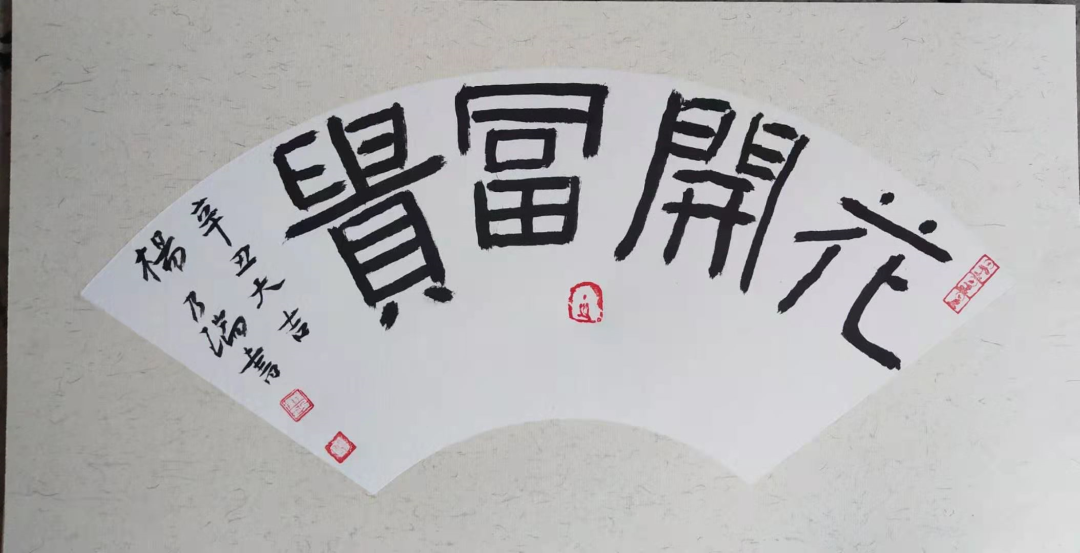 花開富貴
辛丑大吉
楊乃瑞書